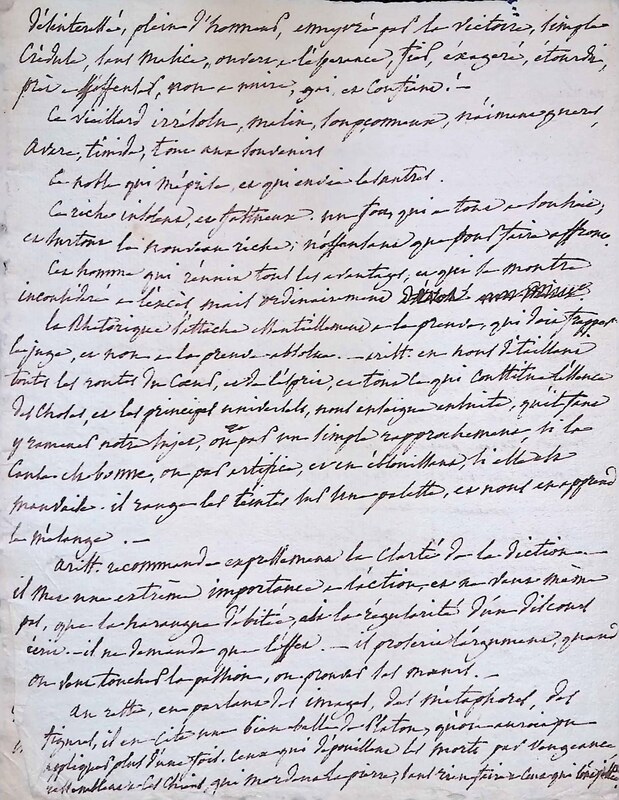 désinteressé, plein d'honneur, ennyvré par la victoire, simple
Crédule, sans malice, ouvert a l'esperance, fier, éxageré, étourdi,
prêt a offenser, non a nuire, gai, et confiant. –
Ce vieillard irrésolu, malin, soupçonneux, n'aimant gueres,
avare, timide, tout aux souvenirs
Ce noble qui méprise, et qui envie les autres.
Ce riche insolent, et fastueux. un fou, qui a tout a souhait,
et surtout le nouveau riche; n'offensant que pour faire affront.
Cet homme qui réunit tous les avantages, et qui se montre
inconsidéré a l'excès, mais ordinairement
la Rhétorique s'attache essentiellement a la preuve, qui doit frapper
le juge, et non a la preuve absolue. – arist. en nous détaillant
toutes les routes du Cœur, et de l'esprit, et tout ce qui constitue l'essence
des choses, et les principes universels, nous enseigne ensuite, qu'il faut
y ramener notre sujet, ou par un simple rapprochement, si la
Cause est bonne, ou par artifice, et en éblouissant si elle est
mauvaise. il range les teintes sur une palette, et nous en apprend
le mélange. –
arist. recommande expressement la clarté de la diction. –
il met une extrême importance a l'action, et ne veut même
pas, que la harangue débitée, ait la regularité d'un discours
écrit. – il ne demande que l'effet. – il proscrit l'argument, quand
on veut toucher la passion, ou prouver les mœurs. –
au reste, en parlant des images, des métaphores, des
figures, il en cite une bien belle de Platon, qu'on auroit pu
appliquer plus d'une fois. Ceux qui dépouillent les morts par vengeance
ressemblent a ces chiens, qui mordent la pierre, sans rien faire a Ceux qui